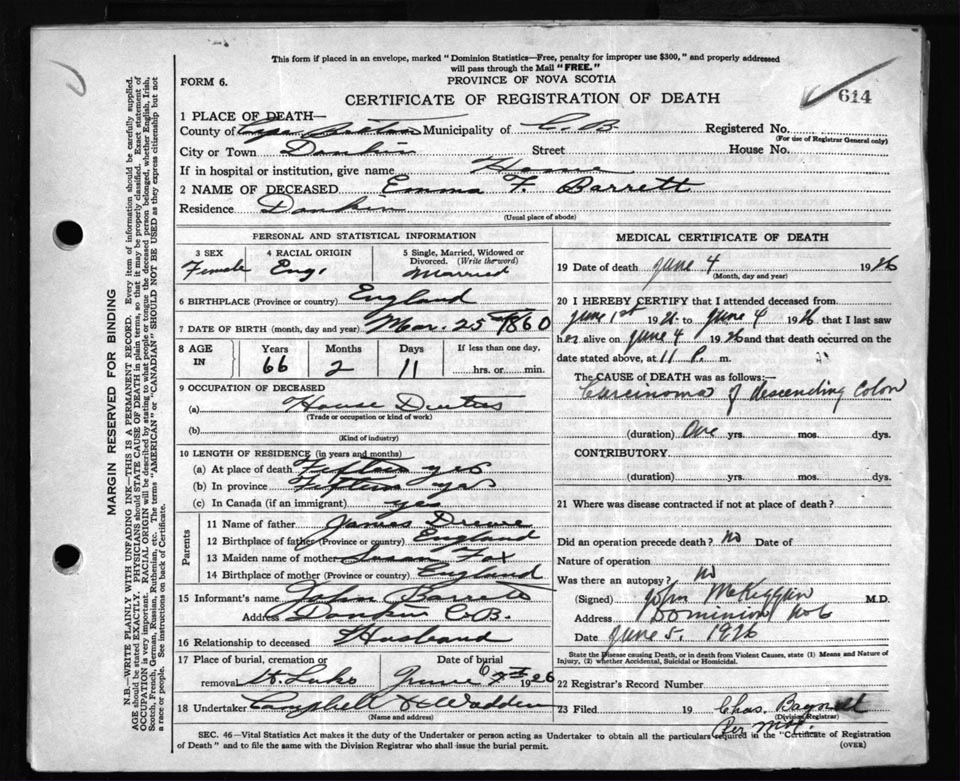 This form if placed in an envelope, marked "Dominion Statistics—Free, penalty for improper use $300," and properly addressed
will pass through the Mail "FREE."
FORM 6.
PROVINCE OF NOVA SCOTIA
CERTIFICATE OF REGISTRATION OF DEATH
614
1 PLACE OF DEATH—
County of Cape Breton Municipality of C. B. Registered No.
(For use of Registrar General only)
City or Town Donkin Street House No.
If in hospital or institution, give name Home
2 NAME OF DECEASED Emma F. Barrett
Residence Donkin
(Usual place of abode)
PERSONAL AND STATISTICAL INFORMATION
3 SEX Female
4 RACIAL ORIGIN Eng.
5 Single, Married, Widowed or Divorced. (Write the word) Married
6 BIRTHPLACE (Province or country) England
7 DATE OF BIRTH (month, day and year) Mar. 25 1860
8 AGE IN Years 66 Months 2 Days 11 If less than one day, hrs. or min.
9 OCCUPATION OF DECEASED
(a) House Duties
(Trade or occupation or kind of work)
(b)
(Kind of industry)
10 LENGTH OF RESIDENCE (in years and months)
(a) At place of death Fifteen yrs
(b) In province Fifteen yrs
(c) In Canada (if an immigrant) yrs
Parents
11 Name of father James
12 Birthplace of father (Province or country) England
13 Maiden name of mother Susan Fox
14 Birthplace of mother (Province or country) England
15 Informant's name John Barrett
Address Donkin C.B.
16 Relationship to deceased Husband
17 Place of burial, cremation or removal St. Lukes
Date of burial June 1926
18 Undertaker Campbell & Wadden
(Name and address)
MEDICAL CERTIFICATE OF DEATH
19 Date of death June 4 1926
(Month, day and year)
20 I HEREBY CERTIFY that I attended deceased from
June 1st 1926 to June 4 1926 that I last saw
her alive on June 4 1926 and that death occurred on the
date stated above, at 11 P. m.
The CAUSE OF DEATH was as follows:—
Carcinoma of descending Colon
(duration) One yrs. mos. dys.
CONTRIBUTORY
(duration) yrs. mos. dys.
21 Where was disease contracted if not at place of death?
Did an operation precede death? No Date of
Nature of operation
Was there an autopsy? No
(Signed) John McKeggan M.D.
Address Dominion No 6
Date June 5. 1926
State the Disease causing Death, or in death from Violent Causes, state (1) Means and Nature of
Injury, (2) whether Accidental, Suicidal or Homicidal.
22 Registrar's Record Number
23 Filed 19 Chas.
(Division Registrar)
Per
SEC. 46—Vital Statistics Act makes it the duty of the Undertaker or person acting as Undertaker to obtain all the particulars required in the "Certificate of Registration
of Death" and to file the same with the Division Registrar who shall issue the burial permit.
(OVER)
MARGIN RESERVED FOR BINDING
N.B.—WRITE PLAINLY WITH UNFADING INK—THIS IS A PERMANENT RECORD. Every item of information should be carefully supplied.
AGE should be stated EXACTLY. PHYSICIANS should STATE CAUSE OF DEATH in plain terms, so that it may be properly classified. Exact statement of
OCCUPATION is very important. RACIAL ORIGIN will be described by stating to what people or tongue the deceased person belonged, whether English, Irish,
Scotch, French, German, Russian, Ruthenian, etc. The terms "AMERICAN" or "CANADIAN" SHOULD NOT BE USED as they express citizenship but not
a race or people. See instructions on back of Certificate.